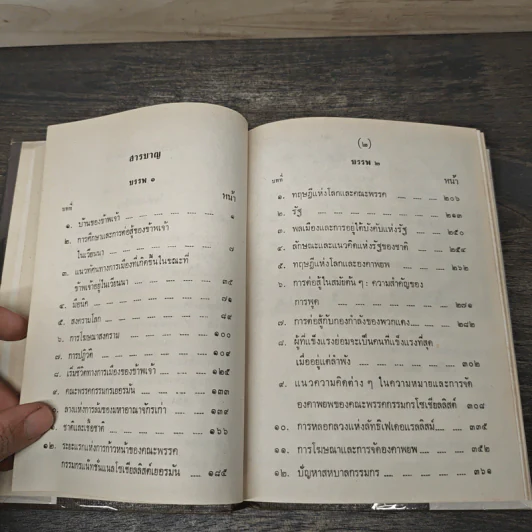 สารบาญ
บรรพ ๑
บทที่ หน้า
๑. บ้านของข้าพเจ้า ... ... ... ... ... ๑
๒. การศึกษาและการต่อสู้ของข้าพเจ้า
ในเวียนนา ... ... ... ... ... ๗
๓. แนวคิดทางการเมืองที่เกิดขึ้นในขณะที่
ข้าพเจ้าอยู่ในเวียนนา ... ... ... ๓๕
๔. มิวนิค ... ... ... ... ... ๗๑
๕. สงครามโลก ... ... ... ... ๘๔
๖. การโฆษณาสงคราม ... ... ... ๑๐๐
๗. การปฏิวัติ ... ... ... ... ๑๐๙
๘. เริ่มชีวิตทางการเมืองของข้าพเจ้า ... ๑๒๕
๙. คณะพรรคกรรมกรเยอรมัน ... ... ๑๓๔
ลางแห่งการล้มของมหาอาณาจักรเก่า ... ๑๓๙
ชาติและเชื้อชาติ ... ... ... ๑๖๖
๑๒. ระยะแรกแห่งการก้าวหน้าของคณะพรรค
กรรมกรแน็ทชั่นแนลโซเชียลลิสต์เยอรมัน ... ๑๘๕
(๒)
บรรพ ๒
บทที่ หน้า
๑. ทฤษฎีแห่งโลกและคณะพรรค ... ... ๒๐๖
๒. รัฐ ... ... ... ... ... ๒๑๓
๓. พลเมืองและการอยู่ใต้บังคับแห่งรัฐ ... ๒๕๐
๔. ลักษณะและแนวคิดแห่งรัฐของชาติ ... ๒๕๔
๕. ทฤษฎีแห่งโลกและองคาพยพ ... ... ๒๖๒
๖. การต่อสู้ในสมัยต้น ๆ : ความสำคัญของ
การพูด ... ... ... ... ๒๗๑
๗. การต่อสู้กับกองกำลังของพวกแดง ... ๒๘๒
๘. ผู้ที่แข็งแรงย่อมจะเป็นคนที่แข็งแรงที่สุด
เมื่ออยู่แต่ลำพัง ... ... ... ๓๐๒
๙. แนวความคิดต่าง ๆ ในความหมายและการจัด
องคาพยพของคณะพรรคกรรมกรโซเชียลลิสต์ ๓๐๘
๑๐. การหลอกลวงแห่งลัทธิเฟเดอแรลลิสม์ ... ๓๓๕
๑๑. การโฆษณาและการจัดองคาพยพ ... ๓๕๒
๑๒. ปัญหาสหบาลกรรมกร ... ... ... ๓๖๑